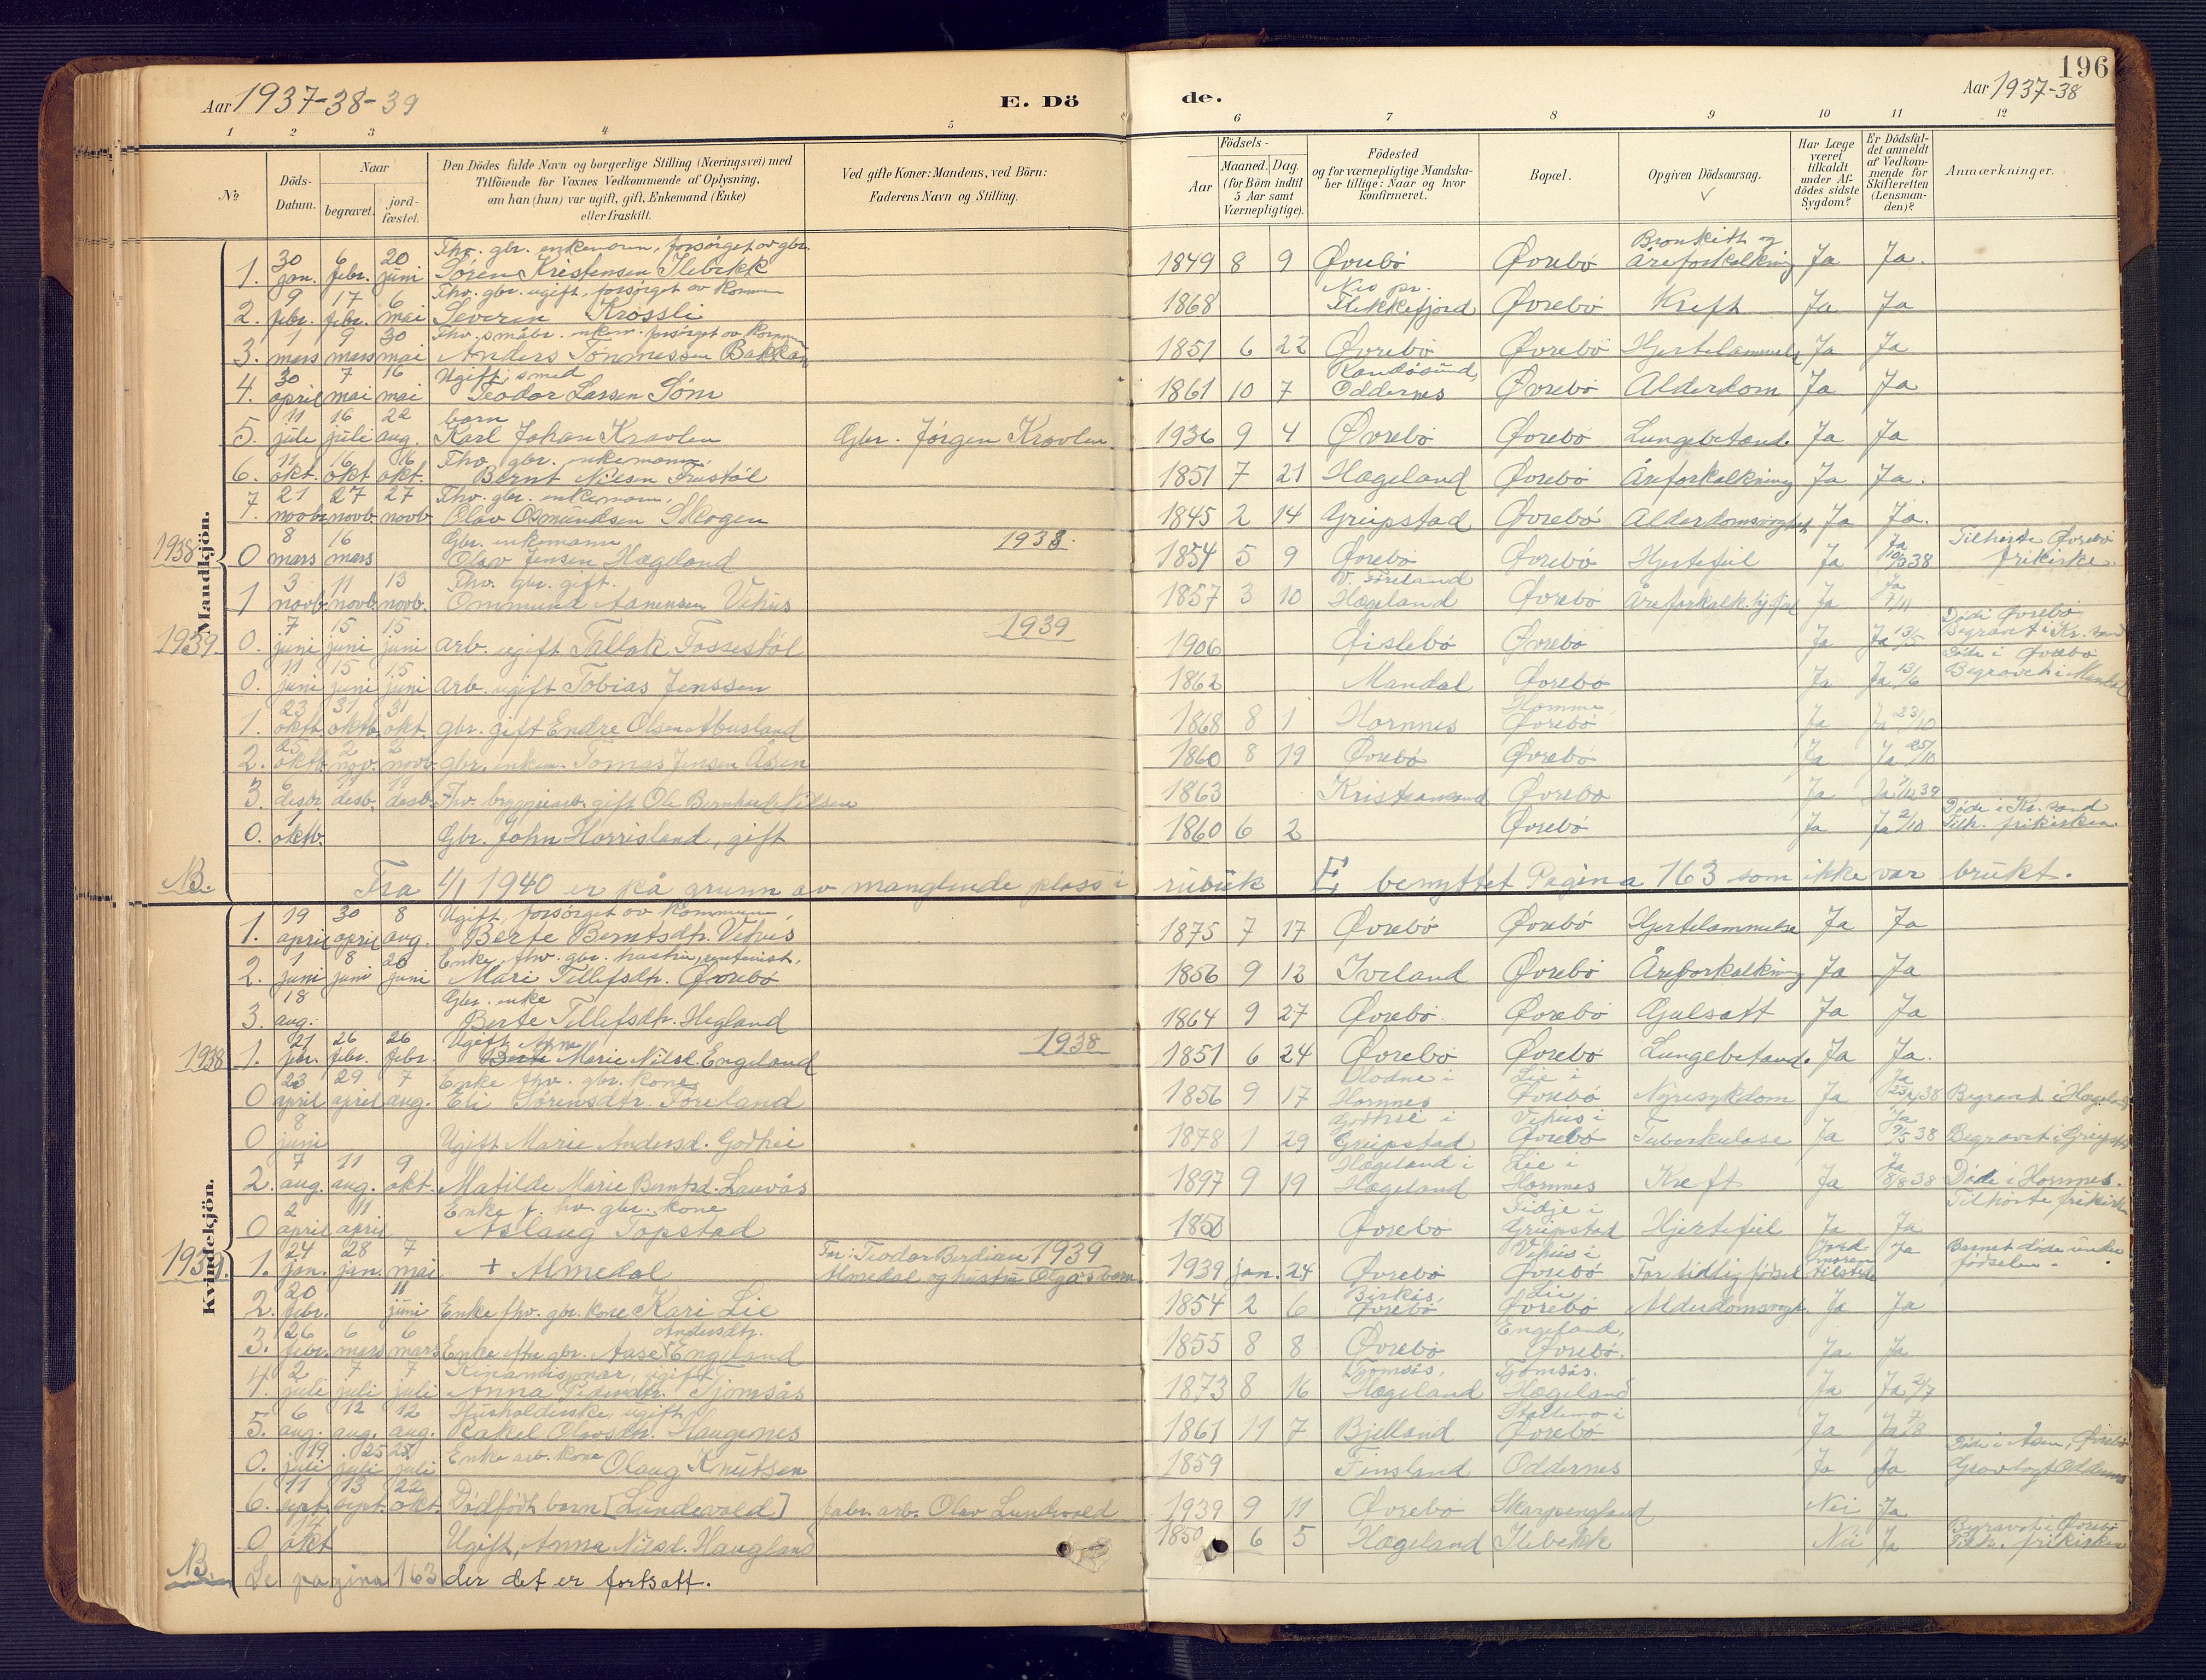 196
Aar 1937-38-39
E. Dö
de.
Aar 1937-38
1 2 3 4 5 6 7 8 9 10 11 12
№
Döds-Datum.
Naar
begravet.
jord-fæstet.
Den Dödes fulde Navn og borgerlige Stilling (Næringsvei) med
Tilföiende for Voxnes Vedkommende af Oplysning,
om han (hun) var ugift, gift, Enkemand (Enke)
eller fraskilt.
Ved gifte Koner: Mandens, ved Börn:
Faderens Navn og Stilling.
Födsels-
Aar
Maaned. Dag.
(for Börn indtil
5 Aar samt
Værnepligtige).
Födested
og for værnepligtige Mandska-
ber tillige: Naar og hvor
konfirmeret.
Bopæl.
Opgiven Dödsaarsag.
Har Læge
været
tilkaldt
under Af-
dödes sidste
Sygdom?
Er Dödsfal-
det anmeldt
af Vedkom-
mende for
Skifteretten
(Lensman-
den)?
Anmærkninger.
Mandkjön.
1. 30 jan. 6 febr. 20 juni Fhv. gbr. enkemann, forsørget av gbr. Søren Kristensen Ilebekk 1849 8 9 Øvrebö Øvrebö Bronkitt og Åreforkalkning Ja Ja.
2. 9 febr. 17 febr. 6 mai Fhv. gbr. ugift, forsørget av kommun Severin Krossli 1868 Nes pr. Flekkefjord Øvrebö Kreft Ja Ja
3. 1 mars 9 mars 30 mai Fhv. småbr. enkem. forsørget av kommun Anders Tønnessen Bakkan 1851 6 22 Øvrebö Øvrebö Hjertelammelse Ja Ja
4. 30 april 7 mai 16 mai Ugift, smed Teodor Lassen Søm 1861 10 7 Randøsund, Oddernes Øvrebö Alderdom Ja Ja
5. 11 juli 16 juli 22 aug. barn Karl Johan Kravlen Gbr. Jørgen Kravlen 1936 9 4 Øvrebö Øvrebö Lungebetend. Ja Ja
6. 11 okt. 16 okt 16 okt. Fhv. gbr. enkemann, Bernt Nilsen Frustöl 1851 7 21 Hægeland Øvrebö Åreforkalkning Ja Ja.
7. 21 novb. 27 novb. 27 novb. Fhv. gbr. enkemann, Olav Osmundsen Skogen 1845 2 14 Greipstad Øvrebö Alderdomssvaghet Ja Ja.
1938
1938.
0 8 mars 16 mars Gbr. enkemann Olav Jensen Hægeland 1854 5 9 Øvrebö Øvrebö Hjertefeil Ja Ja 10/3 38 Tilhørte Øvrebö frikirke.
1 3 novb. 11 novb. 13 novb. Fhv. gbr. gift. Ommund Aanensen Vehus 1857 3 10 V. Føreland Hægeland Øvrebö Åreforkalk. hj.feil Ja Ja 7/11
1939.
1939
0. 7 juni 15 juni 15 juni arb. ugift Tallak Fossestöl 1906 Øislebö Øvrebö Ja Ja 13/5 Död i Øvrebö Begravet i Kr.sand
0. 11 juni 15 juni 15 juni arb. ugift Tobias Jenssen 1862 Mandal Øvrebö Ja Ja 13/6 Döde i Øvrebö Begravet i Mandal
1. 23 oktb. 31 oktb. 31 okt. gbr. gift Endre Olsen Abusland 1868 8 1 Hornnes Homme, Øvrebö Ja Ja 23/10
2. 25 oktb. 2 nov. 2 novb. gbr. enkem. Tomas Jensen Åsen 1860 8 19 Øvrebö Øvrebö Ja Ja 25/10
3. 6 desbr. 11 desb. 11 desb. Fhv. bryggearb. gift Ole Bernhard Nilsen 1863 Kristiansand Øvrebö Ja Ja 7/12 39
0. 1 oktb. Gbr. John Horrisland, gift 1860 6 2 Øvrebö Ja Ja 2/10 Döde i Kr.sand Tilh. frikirken.
NB. Fra 1/1 1940 er på grunn av manglende plass i rubrik E benyttet Pagina 163 som ikke var brukt.
Kvindekjön.
1. 19 april 30 april 8 aug. Ugift, forsørget av kommunen, Berte Berntsdtr. Vehus 1875 7 17 Øvrebö Øvrebö Hjertelammelse Ja Ja
2. 1 juni 8 juni 20 juni Enke, fhv. gbr. hustru, Mari Tellefsdtr. Øvrebö 1856 9 12 Iveland Øvrebö Åreforkalkning Ja Ja
3. 18 aug. Gbr. enke Berte Tellefsdtr. Hegland 1864 9 27 Øvrebö Øvrebö Gulsott Ja Ja
1938
1938
1. 21 febr. 26 febr. 26 febr. Ugift Anne Berte Marie Nilsd. Engeland 1851 6 24 Øvrebö Øvrebö Lungebetend. Ja Ja.
0 23 april 29 april 7 aug. Enke fhv. gbr. kone Eli Sørensdtr. Føreland 1856 9 17 i Hornnes Lie i Øvrebö Nyresykdom Ja Ja 23/4 38 Begravet i Hægeland
0 8 juni Ugift Marie Andersd. Godhei 1878 1 29 Godhei i Greipstad Vehus i Øvrebö Tuberkulose Ja Ja 9/5 38 Begravet i Greipstad
2. 7 aug. 11 aug. 9 okt. Matilde Marie Berntsd. Lauvås 1897 9 19 Hægeland i Hægeland Lie i Hornnes Kreft Ja Ja 8/8 38 Døde i Hornnes. Tilhørte frikirken
0 2 april 11 april Enke f. hv. gbr. kone Aslaug Topstad 1850 Øvrebö Fidje i Greipstad Hjertefeil Ja Ja
1939.
1939
1. 24 jan. 28 jan. 7 mai + Almedal Far: Teodor Berdines Almedal og hustru Olga's barn 1939 jan. 24 Øvrebö Vehus i Øvrebö For tidlig fødsel Jordmoren tilstede Ja Barnet døde under fødselen.
2. 20 febr. 11 juni Enke fhv. gbr. kone Kari Lie 1854 2 6 Birkås, Øvrebö Lie, Øvrebö Alderdomssvagh. Ja Ja
3. 26 febr. 6 mars 6 mars Enke efter gbr. Aase Andersdtr. Engeland 1855 8 8 Øvrebö Engeland, Øvrebö. Ja Ja
4. 2 juli 7 juli 7 juli Kinamisjonær, ugift Anna Tjomsås 1873 8 16 Tjomsås, Hægeland Tjomsås, Hægeland Ja Ja 2/7
5. 6 aug. 12 aug. 12 aug. Husholderske, ugift, Rakel Olavsdtr. Haugenes 1861 11 7 Bjelland Stallemo i Øvrebö Ja Ja 7/8
0. 19 juli 25 juli 28 juli Enke arb. kone Olaug Knutsen 1859 Finsland Oddernes Ja Ja Døde i Åsen, Øvrebö Gravlagt Oddernes
6. 11 sept. 13 sept. 22 okt. Dødfødt barn [Lundevold] fabr. arb. Olav Lundevold 1939 9 11 Øvrebö Skarpengland Nei Ja
0 14 okt Ugift, Anna Nilsd. Haugland 1850 6 5 Hægeland Ilebekk Nei Ja Begravet i Øvrebö Tilh. frikirken
NB. Se pagina 163 der det er fortsatt.